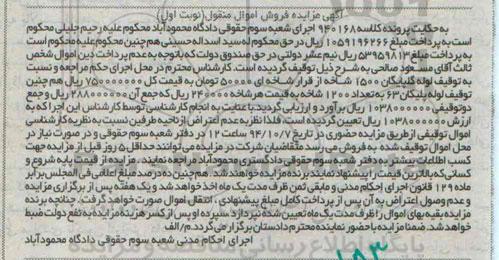 آگهی مزایده فروش اموال منقول (نوبت اول)
به حکایت پرونده کلاسه ۹۴۰۱۶۸ اجرای شعبه سوم حقوقی دادگاه محمودآباد محکوم علیه رحیم جلیلی محکوم
است به پرداخت مبلغ ۱۰۵۹۱۹۶۲۶۶ ریال در حق محکوم له سید اسدالله حسینی هم چنین محکوم علیه محکوم است
به پرداخت مبلغ ۵۲۹۵۹۸۱۳ ریال نیم عشر دولتی در حق صندوق دولت که باتوجه به عدم پرداخت دین اموال شخص
ثالث آقای مسعود صالحی به شرح ذیل توقیف گردیده است. کارشناس محترم در محل اجرای حکم مراجعه و نسبت
به توقیف لوله گلپایگان ۱۵۰۰ شاخه از قرار شاخه ای ۵۰۰۰۰ تومان به قیمت کل ۷۵۰۰۰۰۰۰۰ ریال هم چنین
توقیف لوله پلیکان ۶۳ به تعداد ۱۲۰۰ شاخه به قیمت هر شاخه ۲۴۰۰۰۰ که جمع آن ۲۸۸۰۰۰۰۰۰ ریال و جمع
دو توقیفی ۱۰۳۸۰۰۰۰۰۰ ریال برآورد و ارزیابی گردید. با عنایت به انجام کارشناسی توسط کارشناس این اجرا که به
ارزش ۱۰۳۸۰۰۰۰۰۰ ریال تعیین گردیده است، فلذا نظر به عدم اعتراض از ناحیه طرفین نسبت به نظریه کارشناسی
اموال توقیفی از طریق مزایده حضوری در تاریخ ۹۴/۱۰/۷ ساعت ۱۲ در دفتر شعبه سوم حقوقی و در صورت نیاز در
محل اموال توقیف شده به فروش می رسد متقاضیان شرکت در مزایده می توانند حداقل ۵ روز قبل از مزایده جهت
کسب اطلاعات بیشتر به دفتر شعبه سوم حقوقی دادگستری محمودآباد مراجعه نمایند. مزایده از قیمت پایه شروع و
کسانی که بالاترین قیمت را پیشنهاد نمایند برنده مزایده خواهند شد. هم چنین ده درصد مبلغ اعلامی فی المجلس برابر
ماده ۱۲۹ قانون اجرای احکام مدنی و مابقی ثمن ظرف مدت یک ماه اخذ خواهد شد و یک هفته پس از برگزاری مزایده
و عدم وصول اعتراض به آن پس از پرداخت کامل مبلغ پیشنهادی، انتقال اموال صورت خواهد گرفت. چنانچه برنده
مزایده بقیه بهای اموال را ظرف مدت یک ماه تعیین شده نپردازد سپرده او پس از کسر هزینه مزایده به نفع دولت ضبط
خواهد شد. ضمنا مزایده با حضور نماینده محترم دادستان برگزار می گردد. م/الف
اجرای احکام مدنی شعبه سوم حقوقی دادگاه محمودآباد